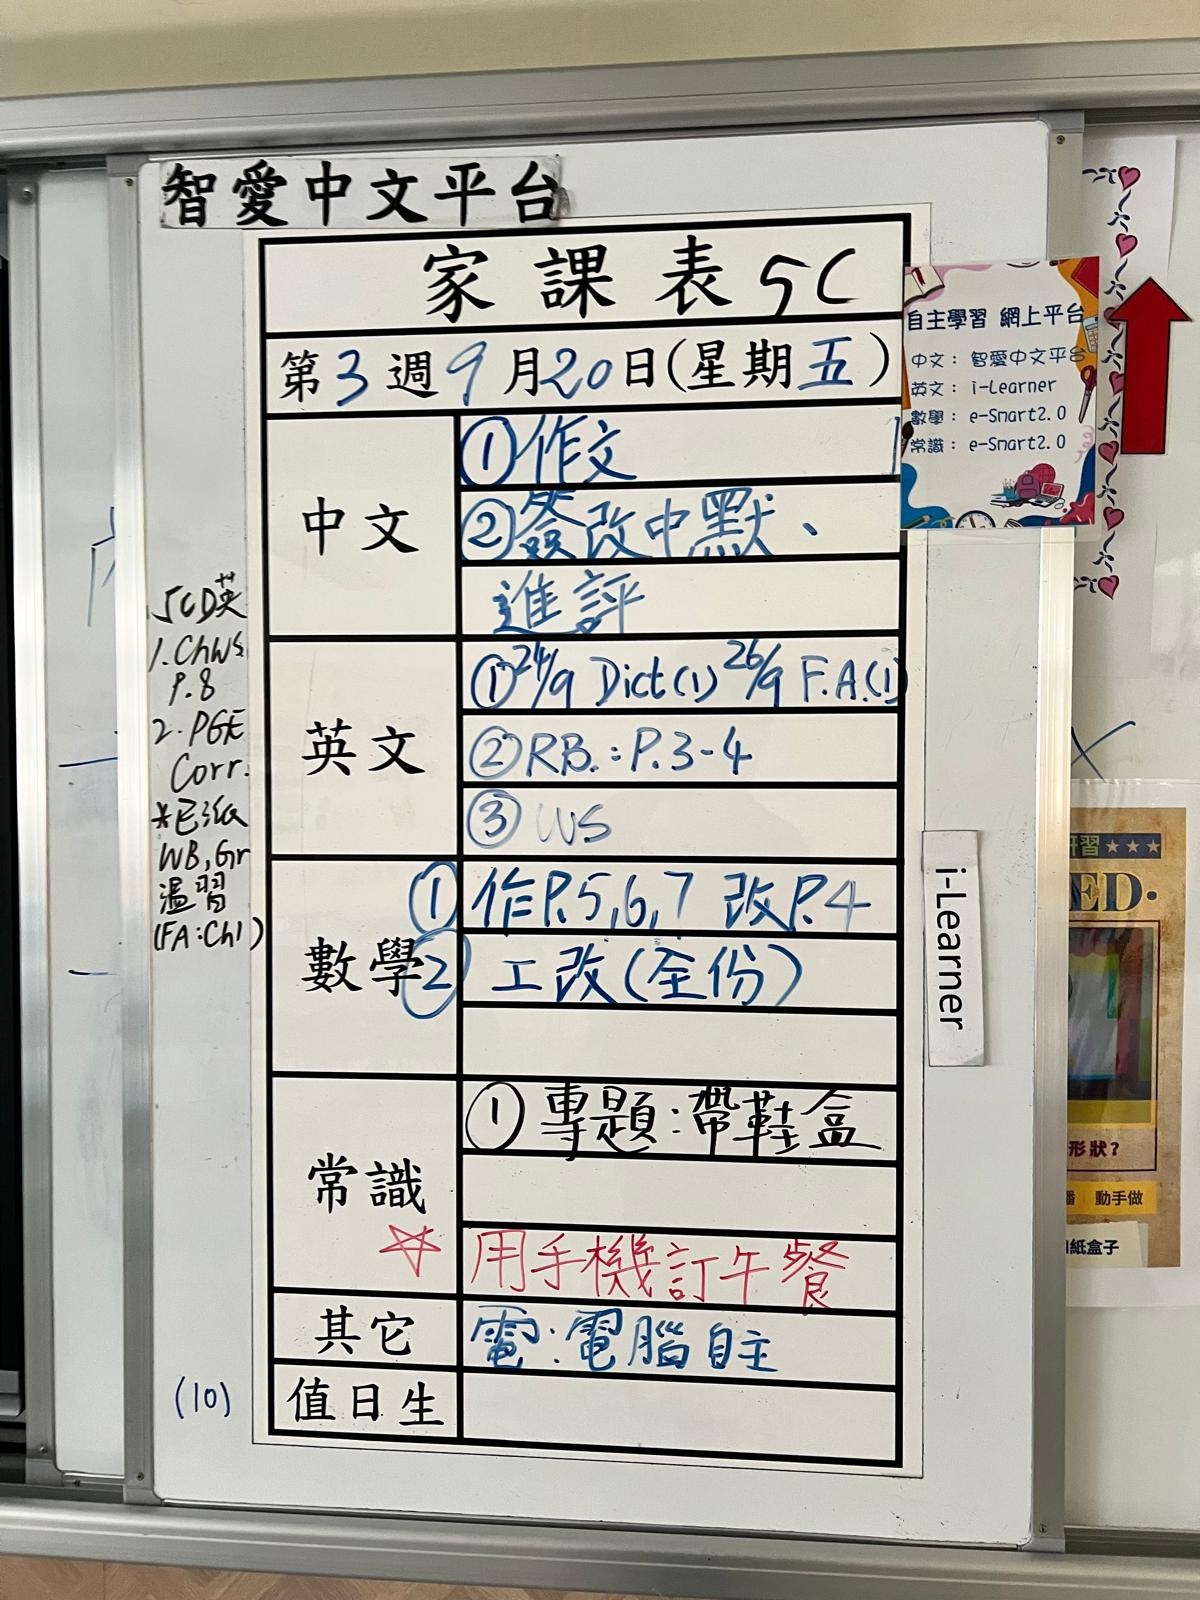 智愛中文平台
家課表 5C
第3週9月20日(星期五)
中文
①作文
②簽改中默、
進評
英文
①24/9 Dict(1) 26/9 F.A.(1)
②RB.:P.3-4
③WS
數學
① 作P.5,6,7 改P.4
② 工改(全份)
常識
① 專題:帶鞋盒
☆用手機訂午餐
其它
電:電腦自主
值日生
(10)
5CD英
1.ChWs
P.8
2.PGE
Corr.
*已派
WB,Gr
溫習
(FA:Ch1)
自主學習 網上平台
中文:智愛中文平台
英文:i-Learner
數學:e-Smart2.0
常識:e-Smart2.0
i-Learner
研習★★★
ED.
形狀?
動手做
紙盒子